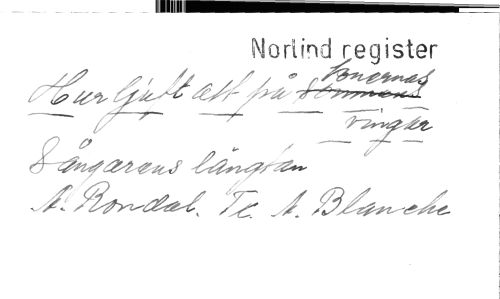 Norlind register
Hur ljuft att på tonernas
vingar
Sångarens längtan
A. Rondal. Tc. A. Blanche